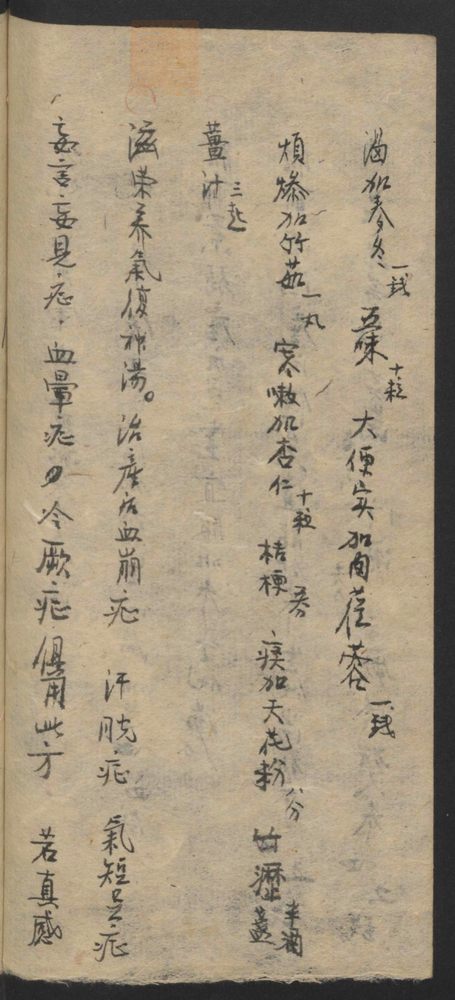 渴加麥冬一錢 五味十粒 大便實加肉蓯蓉一錢
煩燥加竹茹一丸 寒嗽加杏仁十粒 桔梗五分 痰加天花粉八分 竹瀝半酒盞
薑汁三匙
滋榮养氣復神湯。治產后血崩症 汗脱症 氣短足症
妄言妄見症 血暈症 冷厥症 俱用此方 若真感